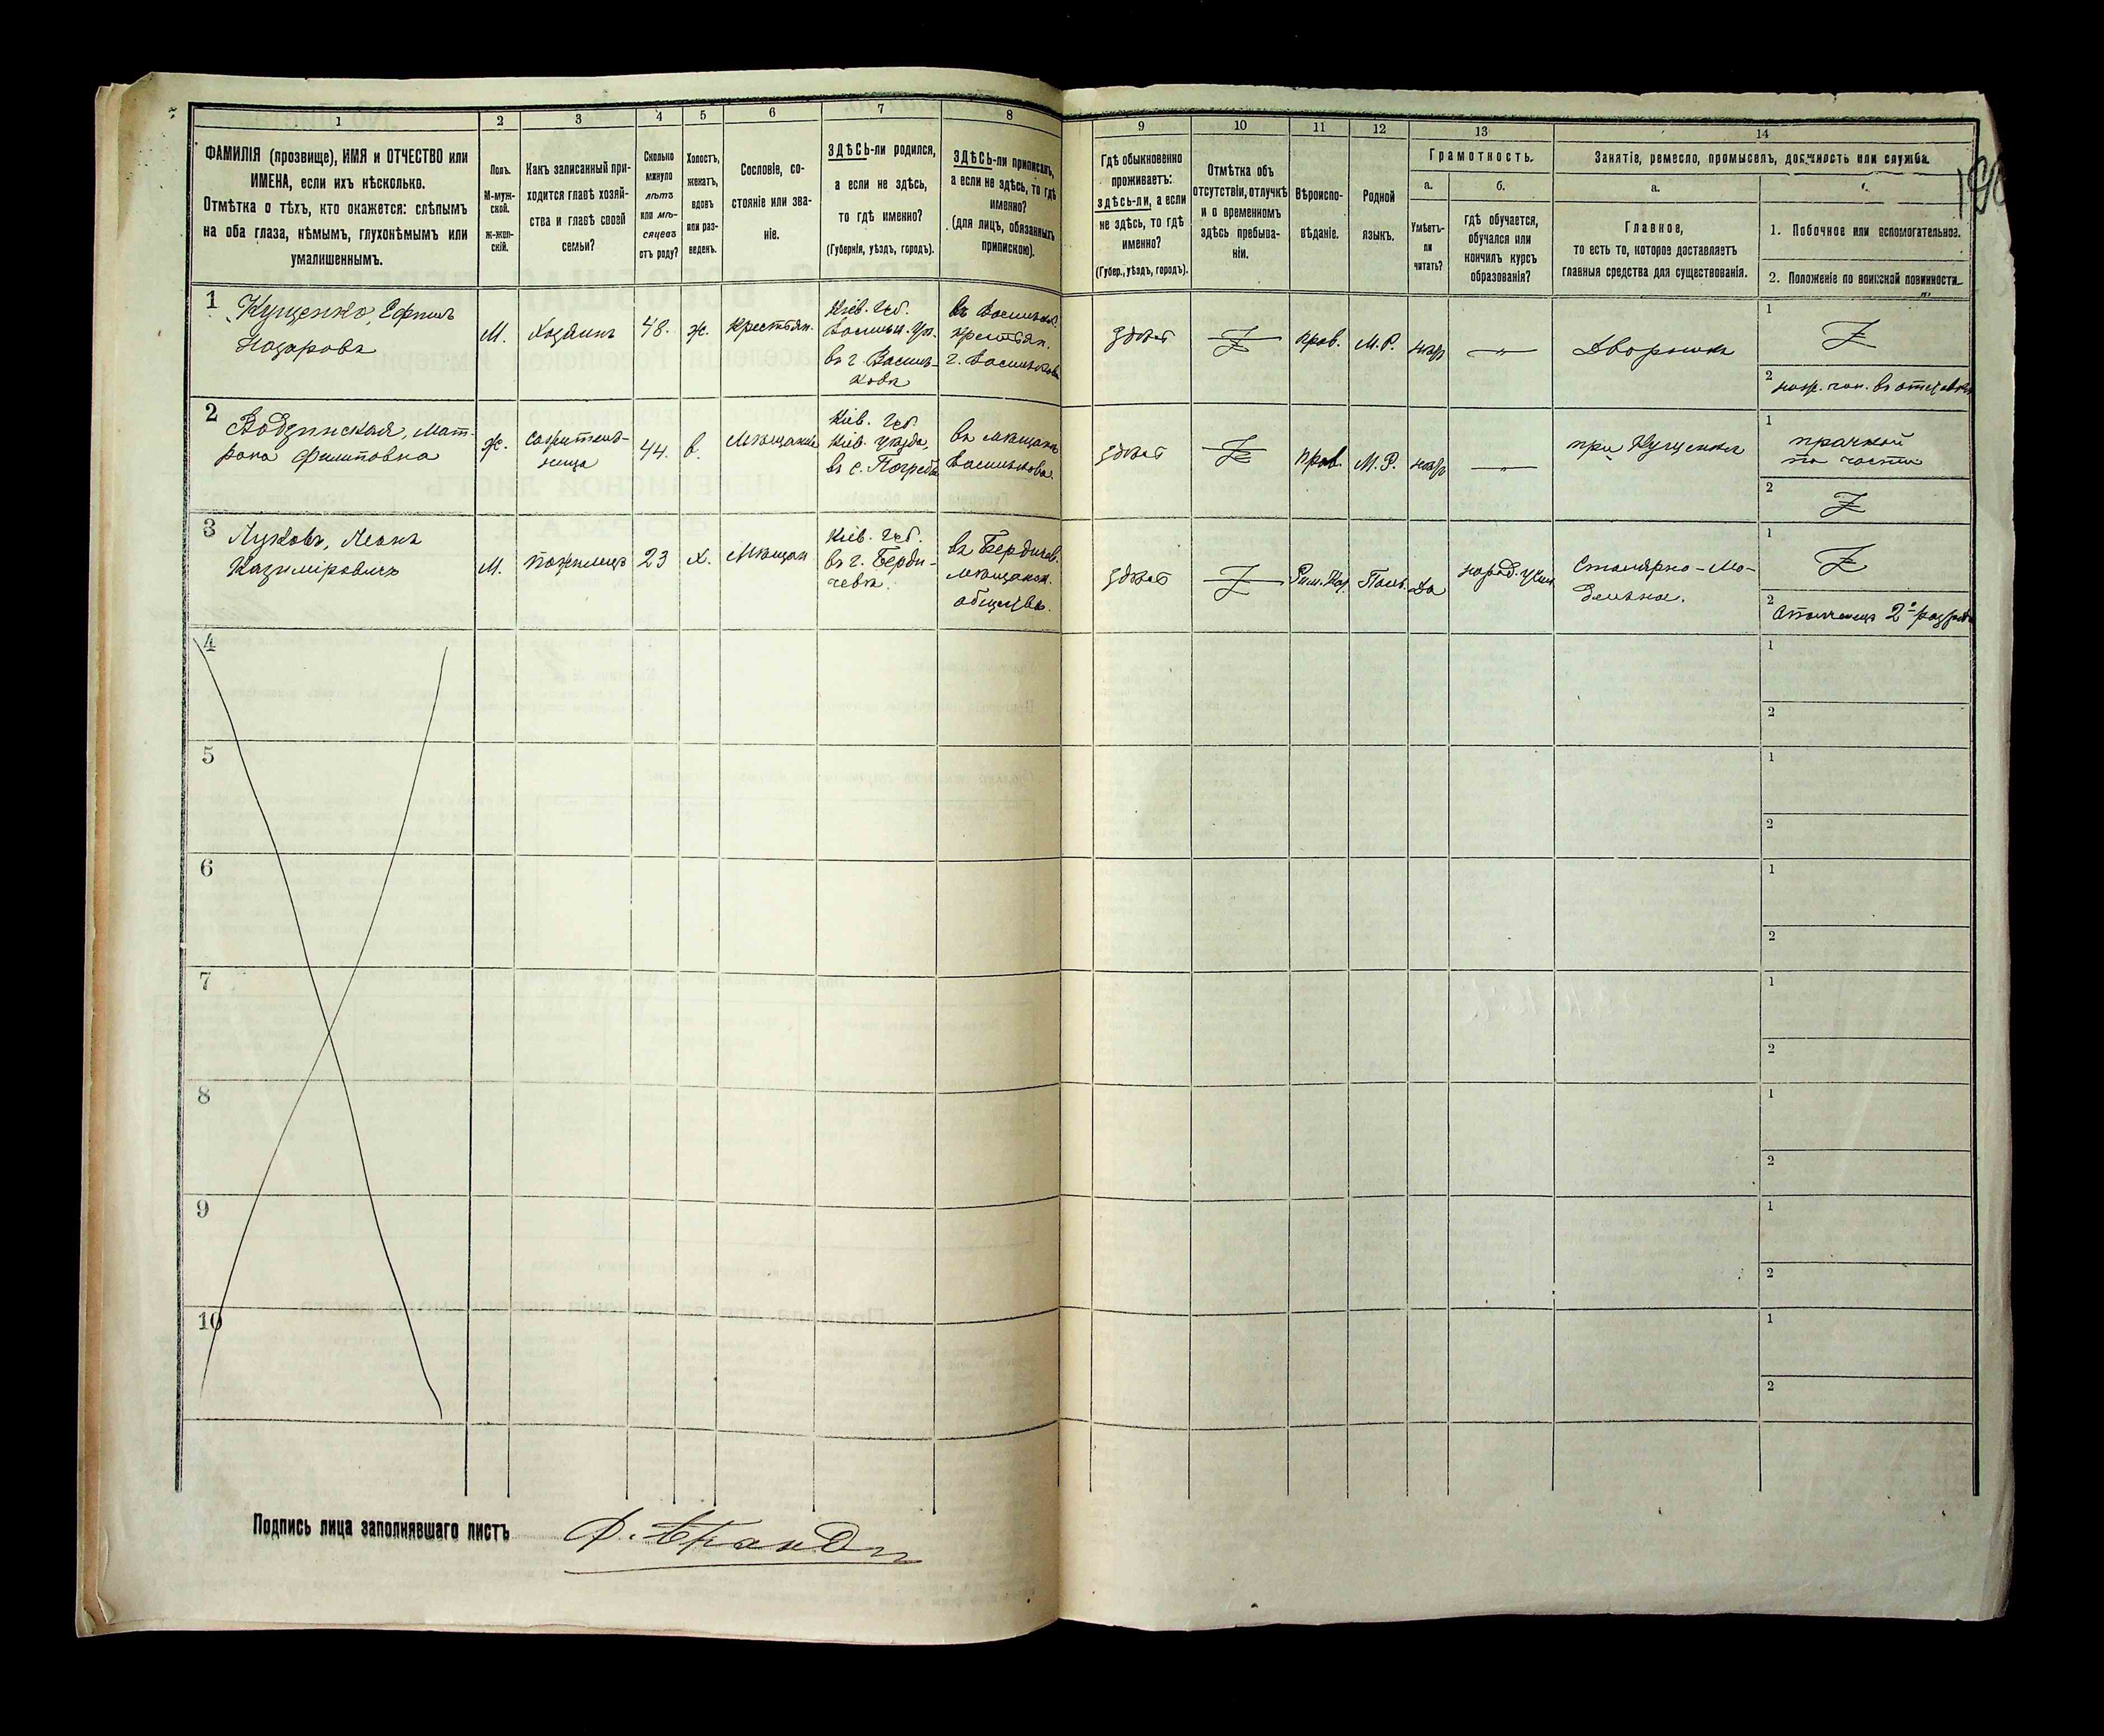 1 2 3 4 5 6 7 8 9 10 11 12 13 14
ФАМИЛІЯ (прозвище), ИМЯ и ОТЧЕСТВО или
ИМЕНА, если ихъ нѣсколько.
Отмѣтка о тѣхъ, кто окажется: слѣпымъ
на оба глаза, нѣмымъ, глухонѣмымъ или
умалишеннымъ.
Полъ.
М-муж-
ской.
Ж-жен-
скій.
Какъ записанный при-
ходится главѣ хозяй-
ства и главѣ своей
семьи?
Сколько
минуло
лѣтъ
или мѣ-
сяцевъ
отъ роду?
Холостъ,
женатъ,
вдовъ
или раз-
веденъ.
Сословіе, со-
стояніе или зва-
ніе.
ЗДѢСЬ-ли родился,
а если не здѣсь,
то гдѣ именно?
(Губернія, уѣздъ, городъ).
ЗДѢСЬ-ли приписанъ,
а если не здѣсь, то гдѣ
именно?
(для лицъ, обязанныхъ
припискою).
Гдѣ обыкновенно
проживаетъ:
здѣсь-ли, а если
не здѣсь, то гдѣ
именно?
(Губер., уѣздъ, городъ).
Отмѣтка объ
отсутствіи, отлучкѣ
и о временномъ
здѣсь пребыва-
ніи.
Вѣроиспо-
вѣданіе.
Родной
языкъ.
Грамотность.
а.
Умѣетъ-
ли
читать?
б.
гдѣ обучается,
обучался или
кончилъ курсъ
образованія?
Занятіе, ремесло, промыселъ, должность или служба.
а.
Главное,
то есть то, которое доставляетъ
главныя средства для существованія.
1. Побочное или вспомогательное.
2. Положеніе по воинской повинности.
1
Кущенко, Ефимъ
Назаровъ
М.
Хозяинъ
48.
ж.
крестьян.
Кіев. Губ.
Васильк. уѣ.
въ г. Василь-
ковѣ
въ Васильков.
крестьян.
г. Василькова
здѣсь
прав.
М. Р.
нѣтъ
Дворникъ
1
2
въ отставкѣ
2
Матрона Филиповна
ж.
сожитель-
ница
44.
в.
Мѣщанка
Кіев. Губ.
Кіев. уѣзда,
въ с. Погребы
въ мѣщан.
Василькова.
здѣсь
прав.
М. Р.
нѣтъ
при Кущенкѣ
1
прачкой
по части
2
3
Казиміровичъ
М.
пожилецъ
23
х.
Мѣщан
Кіев. Губ.
въ г. Берди-
чевѣ.
въ Бердичев.
мѣщанск.
общество.
здѣсь
Рим. Кат.
Поль.
Да
народ. учил.
Столярно-мо-
дельное.
1
2
Ополченецъ 2º разряда
4 1
2
5 1
2
6 1
2
7 1
2
8 1
2
9 1
2
10 1
2
Подпись лица заполнявшаго листъ